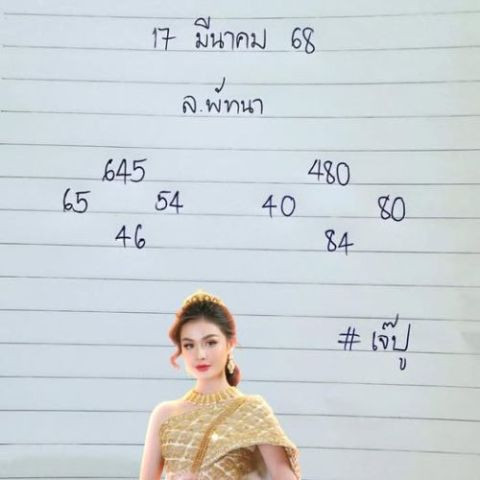 17 มีนาคม 68
ล.พัฒนา
645 480
65 54 40 80
46 84
# เจ๊ปู